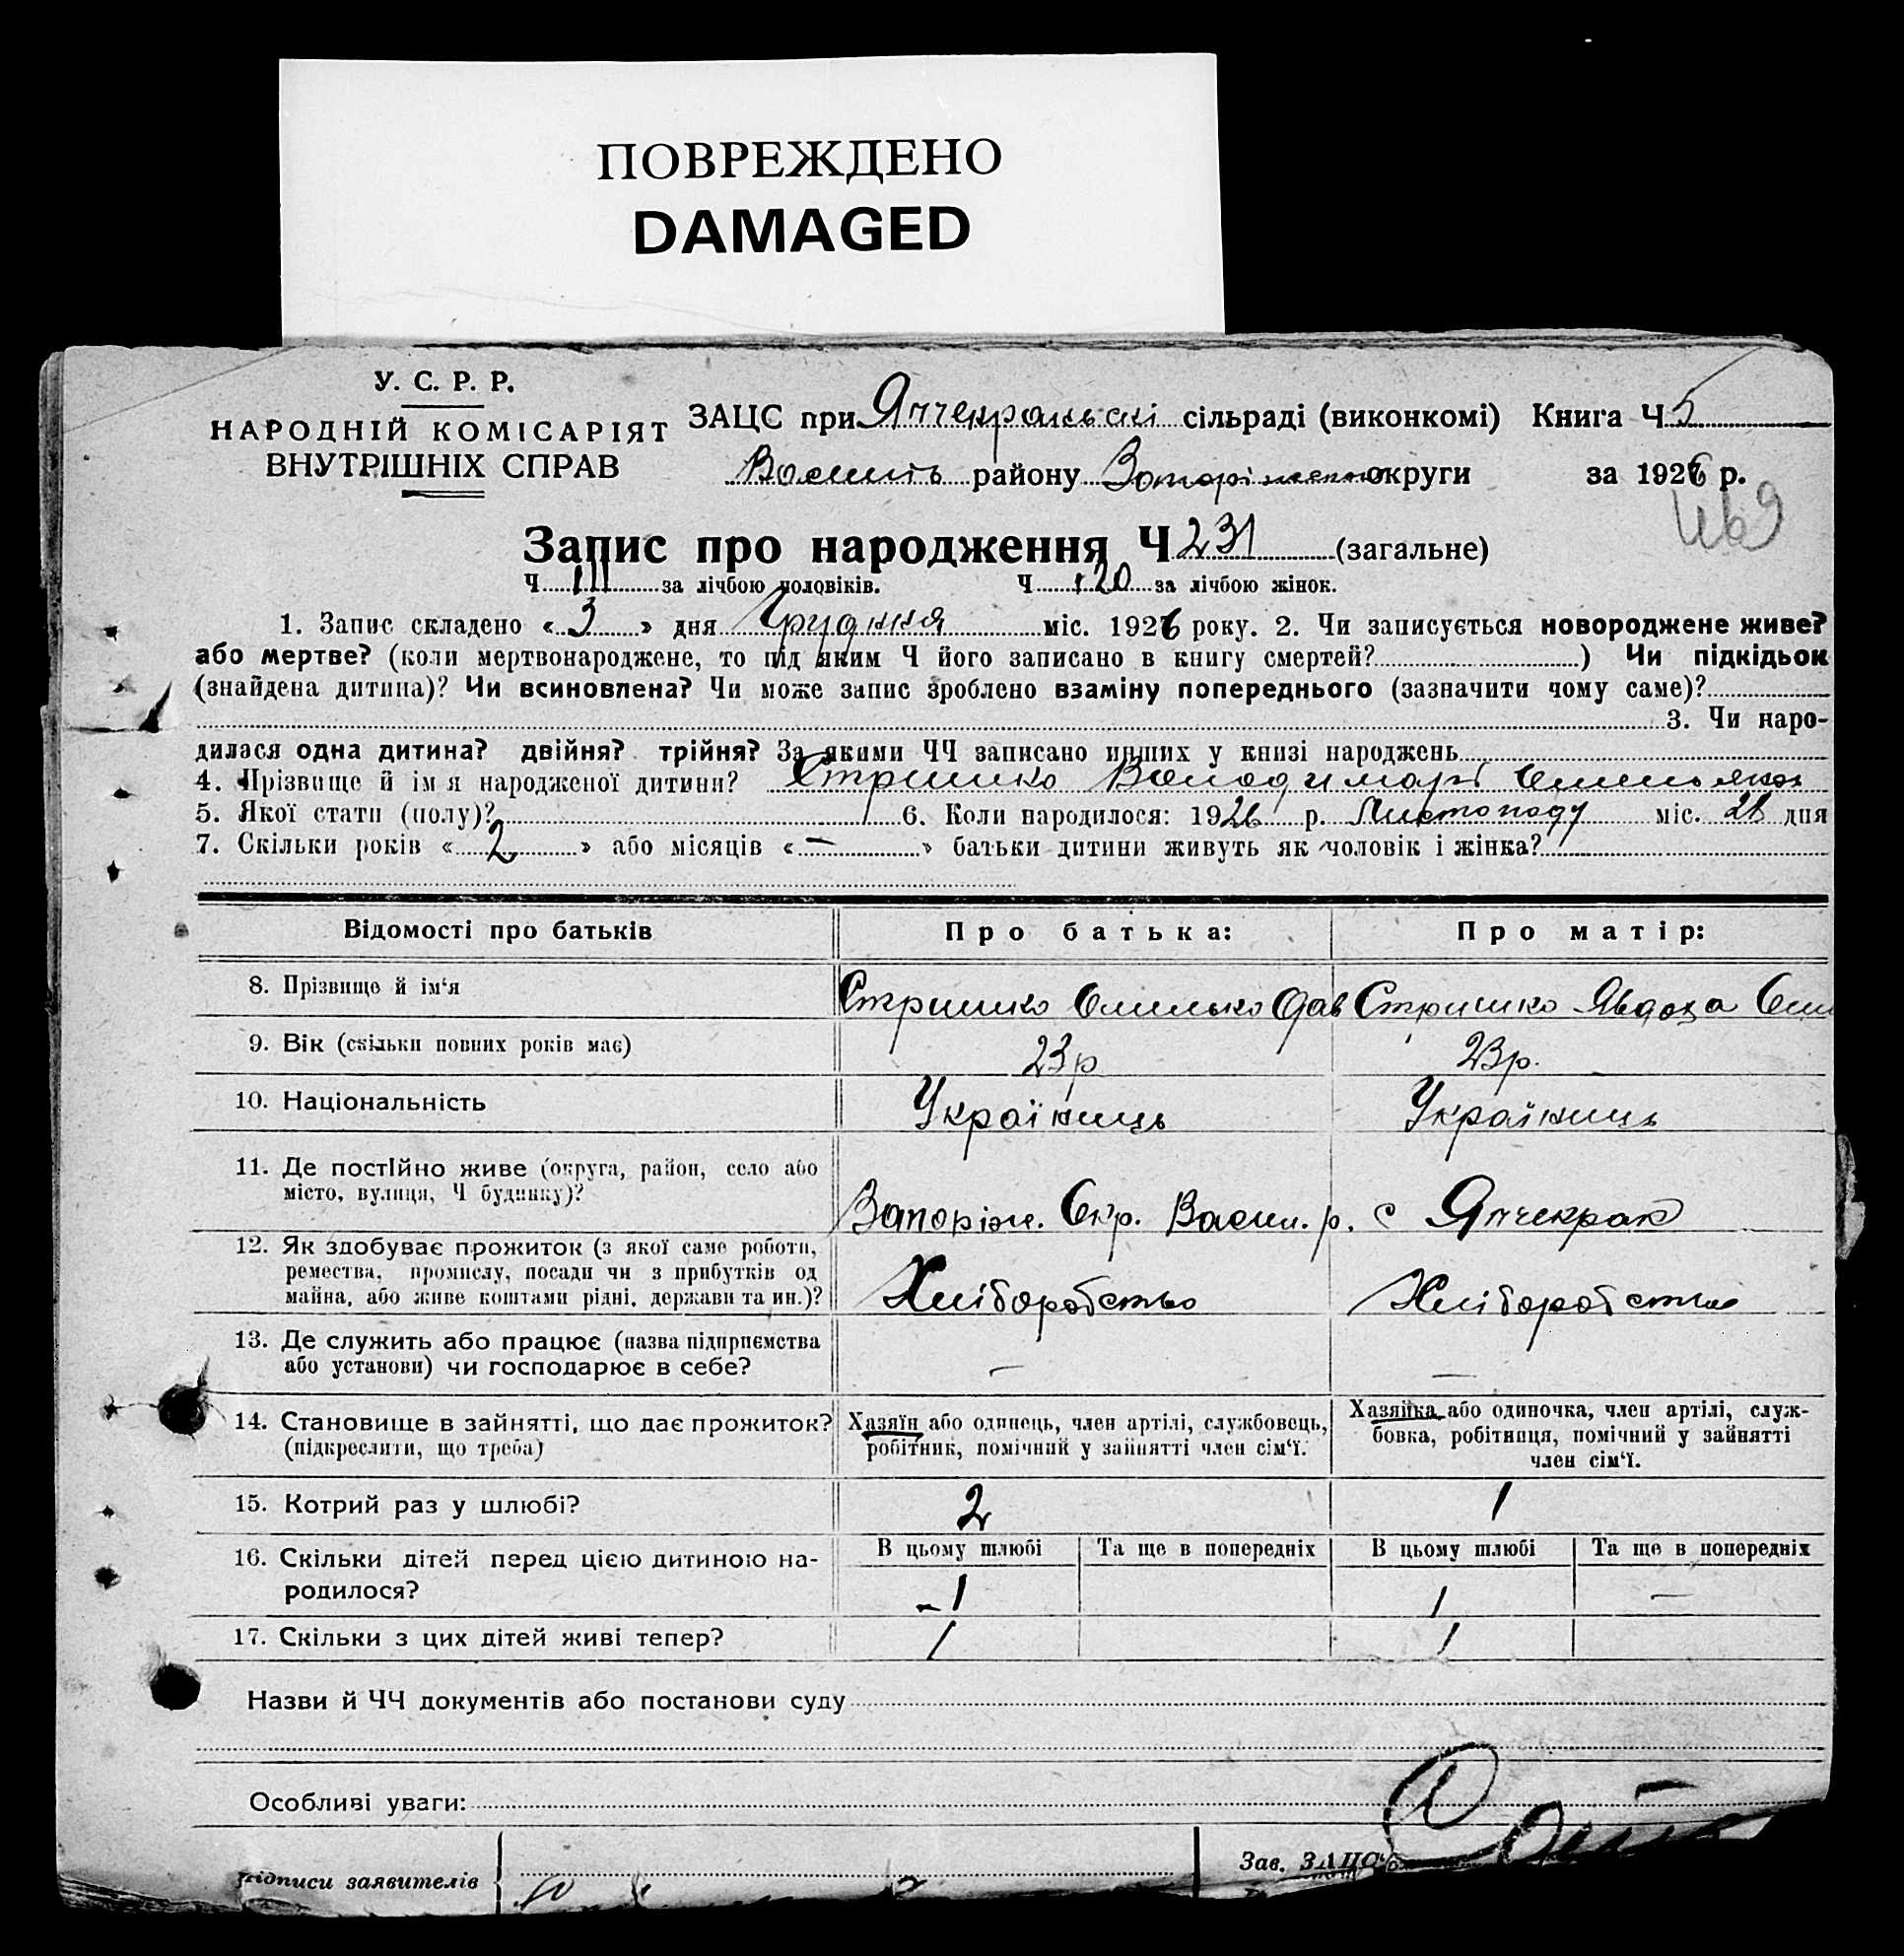 ПОВРЕЖДЕНО
DAMAGED
У. С. Р. Р.
НАРОДНІЙ КОМІСАРІЯТ
ВНУТРІШНІХ СПРАВ
ЗАЦС при Янчекракскі сільраді (виконкомі) Книга Ч 5
Василів району Запоріжської округи за 1926 р.
469
Запис про народження Ч 231 (загальне)
Ч 111 за лічбою чоловіків. Ч 120 за лічбою жінок.
1. Запис складено « 3 » дня Грудня міс. 1926 року. 2. Чи записується новороджене живе?
або мертве? (коли мертвонароджене, то під яким Ч його записано в книгу смертей?) Чи підкідьок
(знайдена дитина)? Чи всиновлена? Чи може запис зроблено взаміну попереднього (зазначити чому саме)?
3. Чи наро-
дилася одна дитина? двійня? трійня? За якими ЧЧ записано инших у книзі народжень
4. Прізвище й ім'я народженої дитини? Стришко Володимарь
5. Якої стати (полу)? 6. Коли народилося: 1926 р. Листопаду міс. 28 дня
7. Скільки років « 2 » або місяців « — » батьки дитини живуть як чоловік і жінка?
Відомості про батьків Про батька: Про матір:
8. Прізвище й ім'я Стришко Омилько Дав Стришко Явдоха
9. Вік (скільки повних років має) 23 р 23 р.
10. Національність Україниць Україниць
11. Де постійно живе (округа, район, село або
місто, вулиця, Ч будинку)? Запоріж. Окр. Васил. р. с Янчекрак
12. Як здобуває прожиток (з якої саме роботи,
ремества, промислу, посади чи з прибутків од
майна, або живе коштами рідні, держави та ин.)? Хліборобство Хліборобство
13. Де служить або працює (назва підприємства
або установи) чи господарює в себе? — —
14. Становище в зайнятті, що дає прожиток?
(підкреслити, що треба)
Хазяїн або одинець, член артілі, службовець,
робітник, помічний у зайнятті член сім'ї.
Хазяйка або одиночка, член артілі, служ-
бовка, робітниця, помічний у зайнятті
член сім'ї.
15. Котрий раз у шлюбі? 2 1
16. Скільки дітей перед цією дитиною на-
родилося?
В цьому шлюбі Та ще в попередніх В цьому шлюбі Та ще в попередніх
1 1 —
17. Скільки з цих дітей живі тепер? 1 1
Назви й ЧЧ документів або постанови суду
Особливі уваги:
підписи заявителів
Зав. ЗАЦС